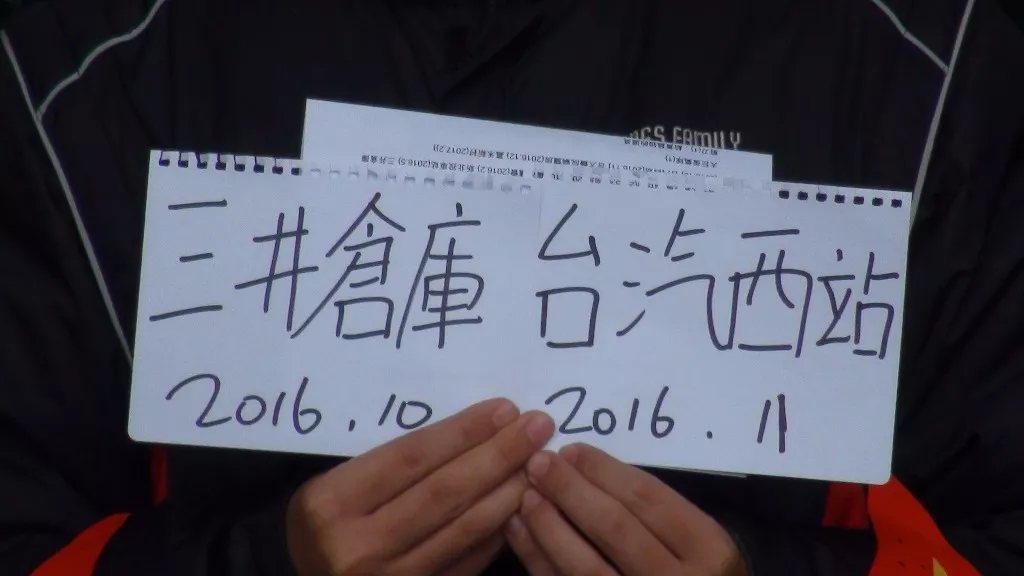 FAMILY
三井倉庫 台汽西站
2016.10 2016.11